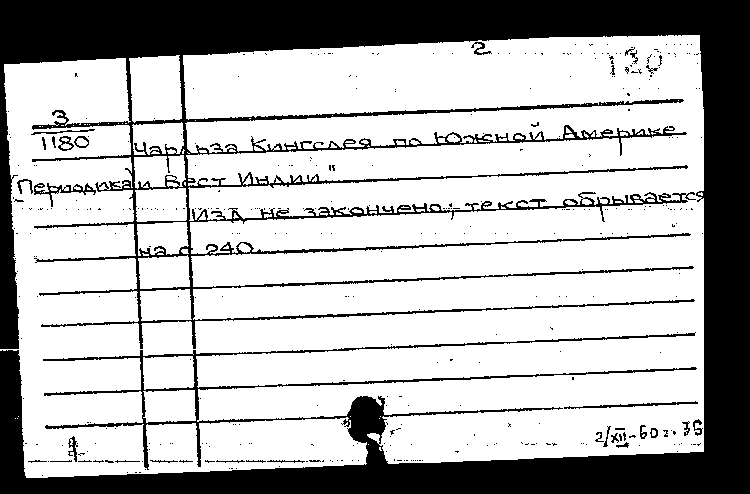 2
120
3
1180
Чарльза Кингслея по Южной Америке
(Периодика) и Вест Индии"
Изд не закончено; текст обрывается
на с 240.
2/XII-60г. 36